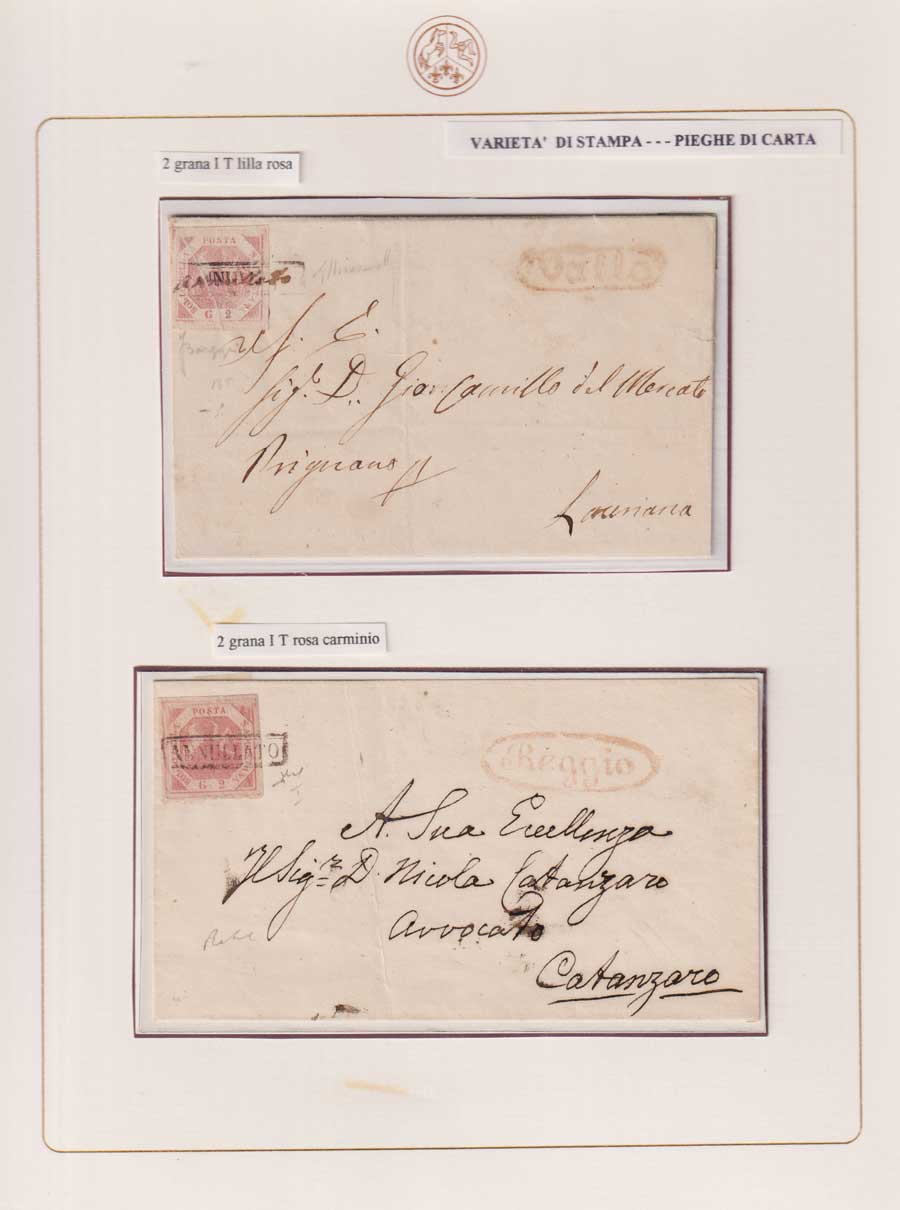 VARIETA' DI STAMPA - - - PIEGHE DI CARTA
2 grana I T lilla rosa
POSTA
G 2
A S. E.
Sig.r D. Gian Camillo del Mercato
Prignano
Laureana
2 grana I T rosa carminio
POSTA
ANNULLATO
G 2
Reggio
A Sua Eccellenza
Il Sig.r D. Nicola Catanzaro
Avvocato
Catanzaro